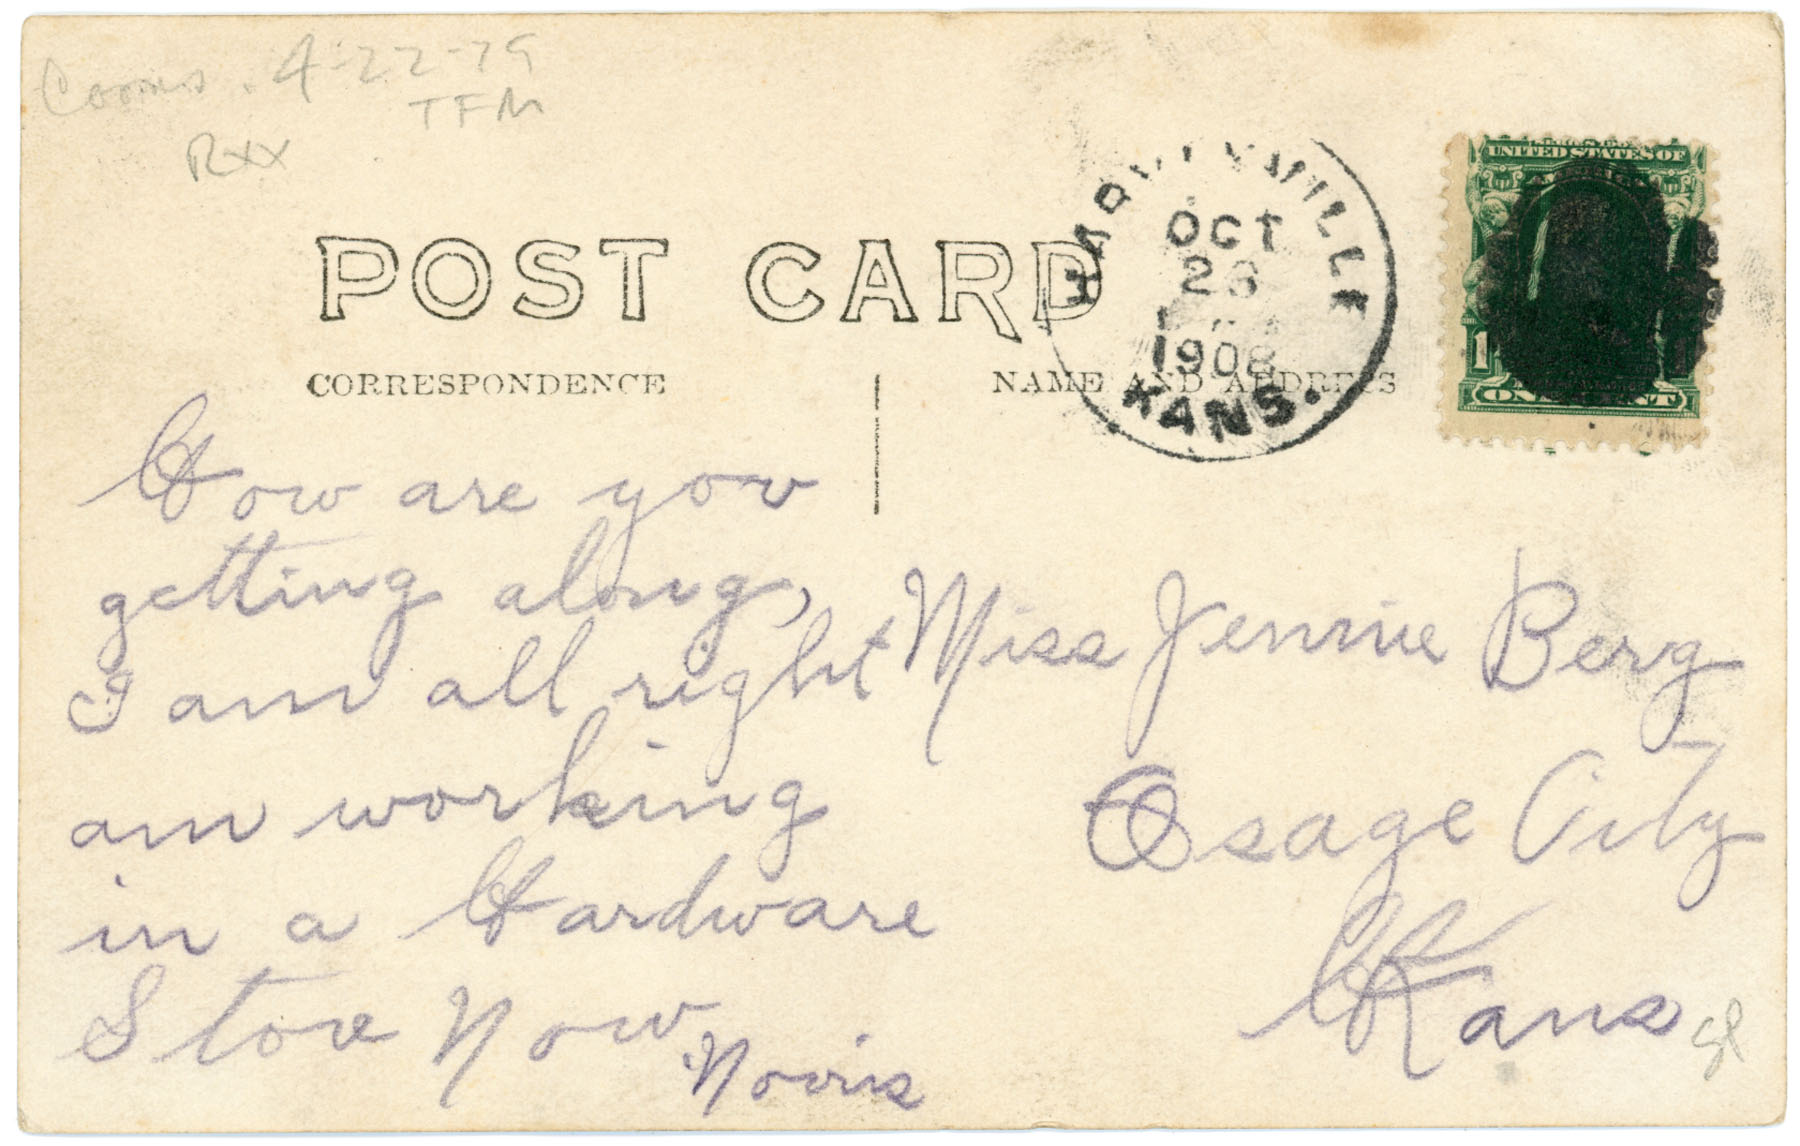 4-22-79
TFM
RXX
POST CARD
CORRESPONDENCE
NAME AND ADDRESS
HARVEYVILLE
OCT
26
1908
KANS.
UNITED STATES OF
1
ONE CENT
How are you
getting along,
I am all right
am working
in a Hardware
Store Now
Norris
Miss Jennie Berg
Osage City
Kans